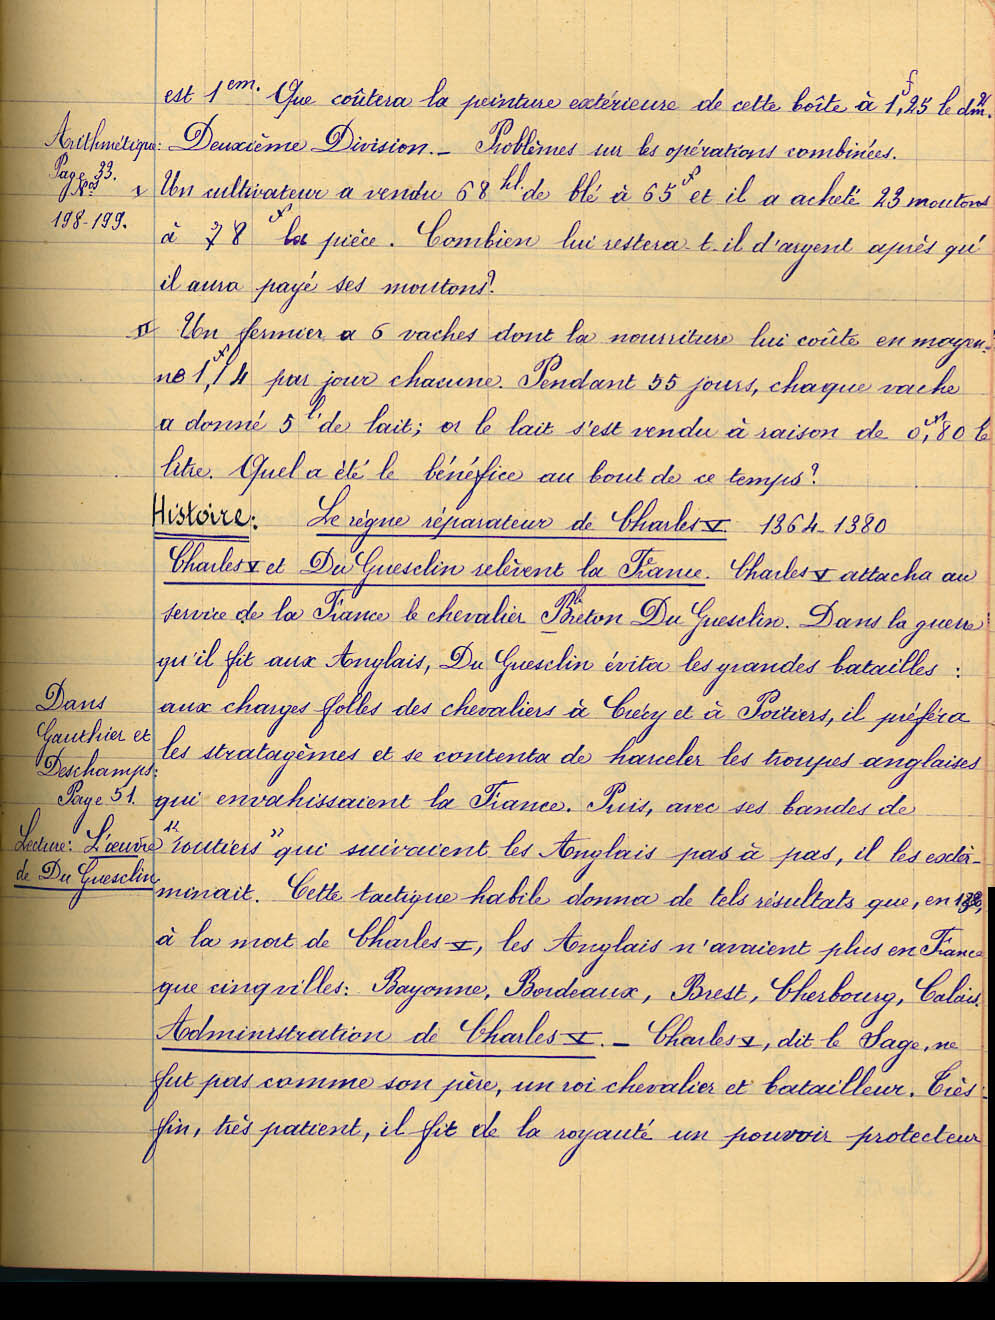 est 1 cm. Que coûtera la peinture extérieure de cette boîte à 1f,25 le dm2.
Arithmétique: Deuxième Division. _ Problèmes sur les opérations combinées.
Page 33.
Nos
198-199.
I Un cultivateur a vendu 68 hl. de blé à 65 f et il a acheté 23 moutons
à 78 f la pièce. Combien lui restera-t-il d'argent après qu'
il aura payé ses moutons?
II Un fermier a 6 vaches dont la nourriture lui coûte en moyen-
ne 1f,14 par jour chacune. Pendant 55 jours, chaque vache
a donné 5 l. de lait; or le lait s'est vendu à raison de 0f,80 le
litre. Quel a été le bénéfice au bout de ce temps?
Histoire: Le règne réparateur de Charles V. 1364-1380
Charles V et Du Guesclin relèvent la France. Charles V attacha au
service de la France le chevalier Breton Du Guesclin. Dans la guerre
qu'il fit aux Anglais, Du Guesclin évita les grandes batailles :
aux charges folles des chevaliers à Crécy et à Poitiers, il préféra
les stratagèmes et se contenta de harceler les troupes anglaises
qui envahissaient la France. Puis, avec ses bandes de
"routiers" qui suivaient les Anglais pas à pas, il les exter-
minait. Cette tactique habile donna de tels résultats que, en
à la mort de Charles V, les Anglais n'avaient plus en France
que cinq villes: Bayonne, Bordeaux, Brest, Cherbourg, Calais.
Dans
Gauthier et
Deschamps:
Page 51.
Lecture: L'œuvre
de Du Guesclin
Administration de Charles V. _ Charles V, dit le Sage, ne
fut pas comme son père, un roi chevalier et batailleur. Très
fin, très patient, il fit de la royauté un pouvoir protecteur